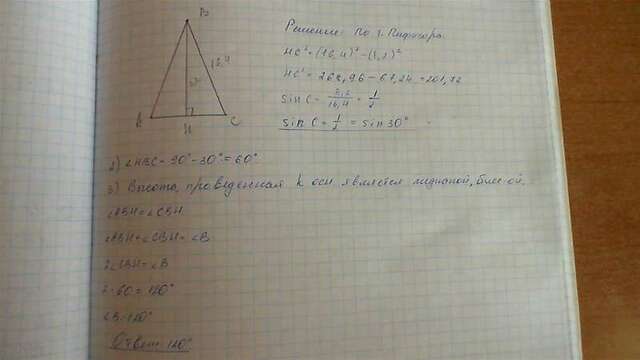 B
16,4
A
H
C
Решение: По т. Пифагора.
HC² = (16,4)² - (8,2)²
HC² = 268,96 - 67,24 = 201,72
sin C = 8,2/16,4 = 1/2
sin C = 1/2 = sin 30°
2) ∠HBC = 90° - 30° = 60°
3) Высота, проведенная к осн является медианой, бисс-ой.
∠ABH = ∠CBH
∠ABH + ∠CBH = ∠B
2∠CBH = ∠B
2·60 = 120°
∠B = 120°
Ответ: 120°